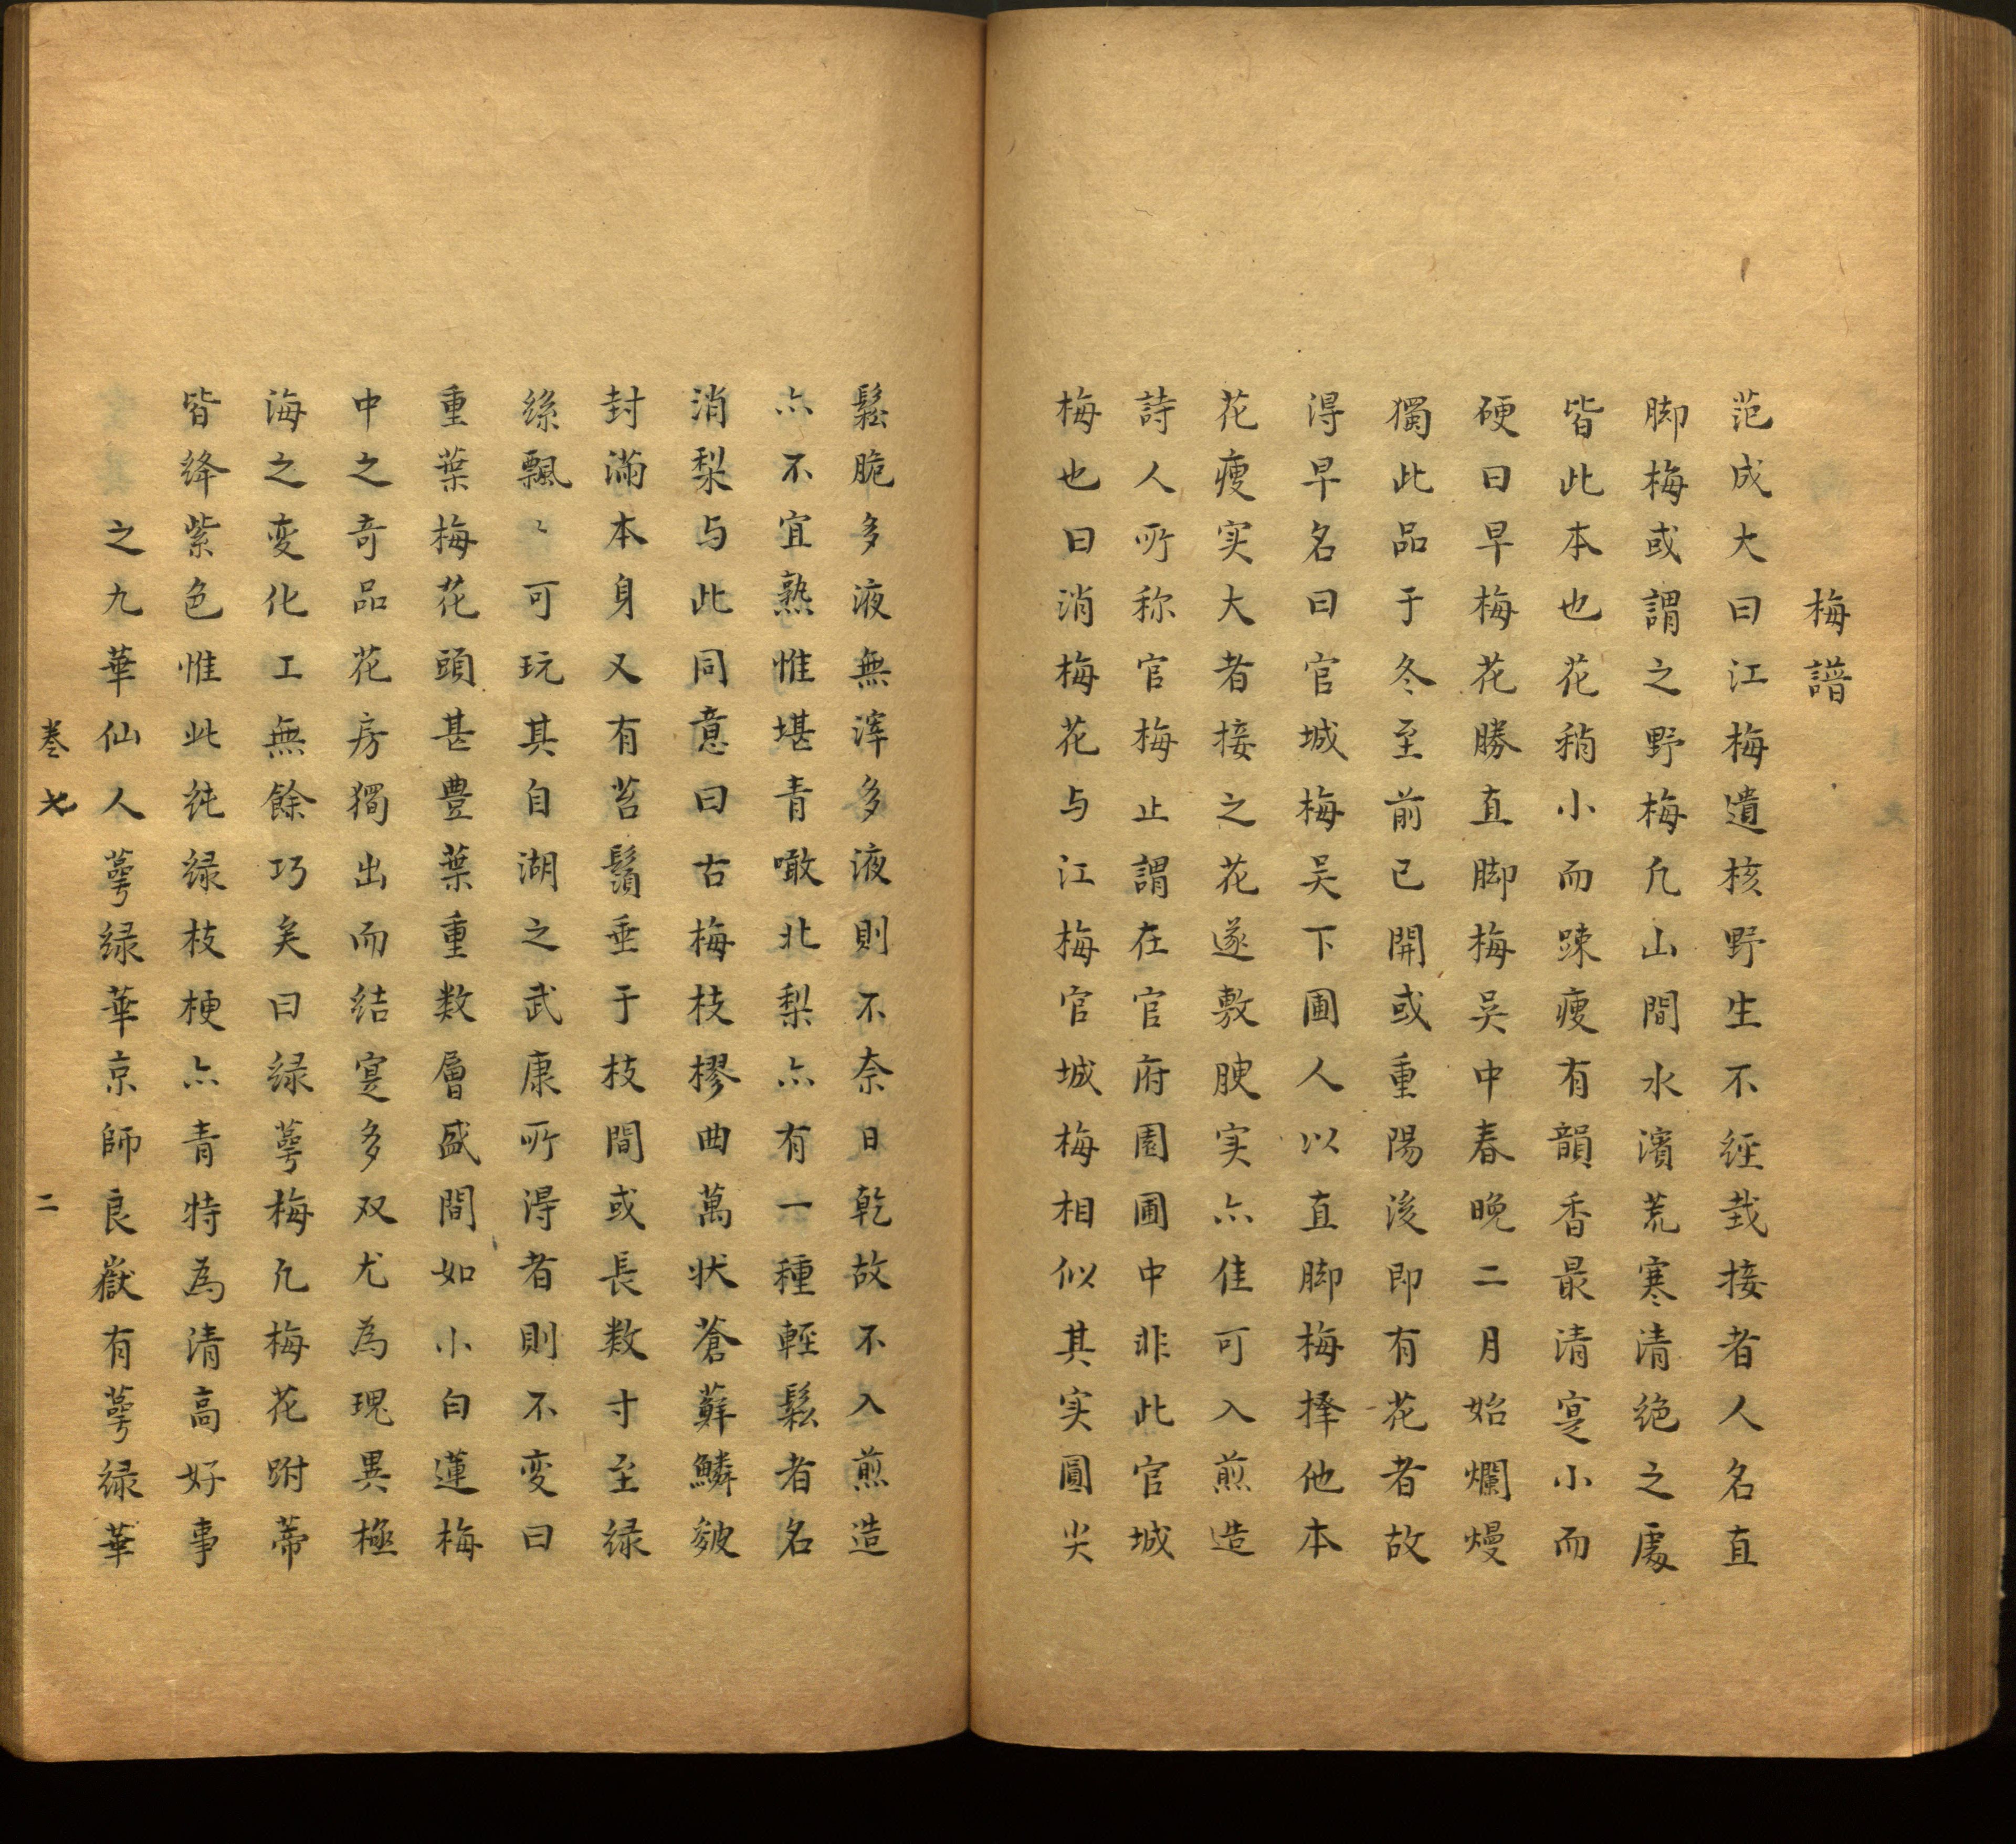 梅譜
范成大曰江梅遺核野生不經栽接者人名直
脚梅或謂之野梅凢山間水濱荒寒清绝之處
皆此本也花稍小而踈瘦有韻香最清寔小而
硬曰早梅花勝直脚梅吴中春晚二月始爛熳
獨此品于冬至前已開或重陽後即有花者故
得早名曰官城梅吴下圃人以直脚梅擇他本
花瘦实大者接之花遂敷腴实亦佳可入煎造
詩人所称官梅止謂在官府園圃中非此官城
梅也曰消梅花与江梅官城梅相似其实圓尖
鬆脆多液無滓多液則不奈日乾故不入煎造
亦不宜熟惟堪青噉北梨亦有一種輕鬆者名
消梨与此同意曰古梅枝樛曲萬状蒼蘚鱗皴
封滿本身又有苔鬚垂于枝間或長数寸至绿
絲飄〻可玩其自湖之武康所得者則不变曰
重葉梅花頭甚豊葉重数層盛間如小白蓮梅
中之竒品花房獨出而结寔多双尤為瑰異極
海之变化工無餘巧矣曰绿萼梅凢梅花跗蒂
皆绛紫色惟此纯绿枝梗亦青特為清高好事
之九華仙人萼绿華京師艮嶽有萼绿華
卷七
二